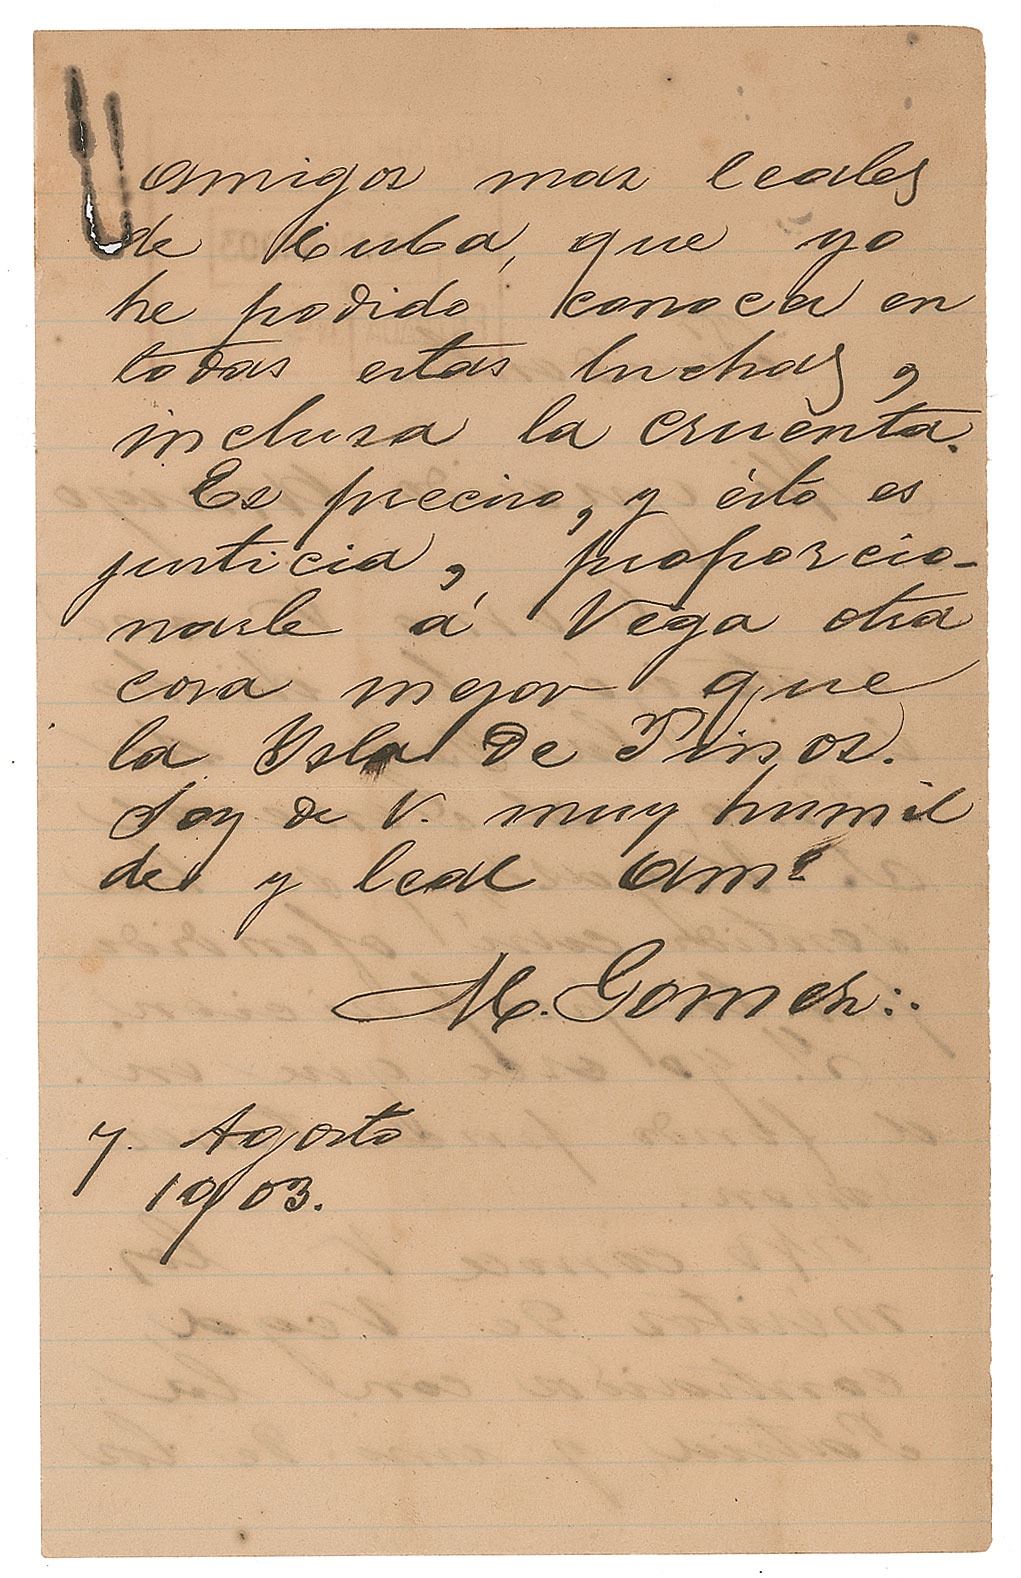 amigos mas leales
de Cuba, que yo
he podido conocer en
todas estas luchas,
inclusa la cruenta.
Es preciso, y ésto es
justicia, proporcio-
narle á Vega otra
cosa mejor que
la Isla de Pinos.
Soy de V. muy humil
de y leal am°
M. Gomez:.
7. Agosto
1903.